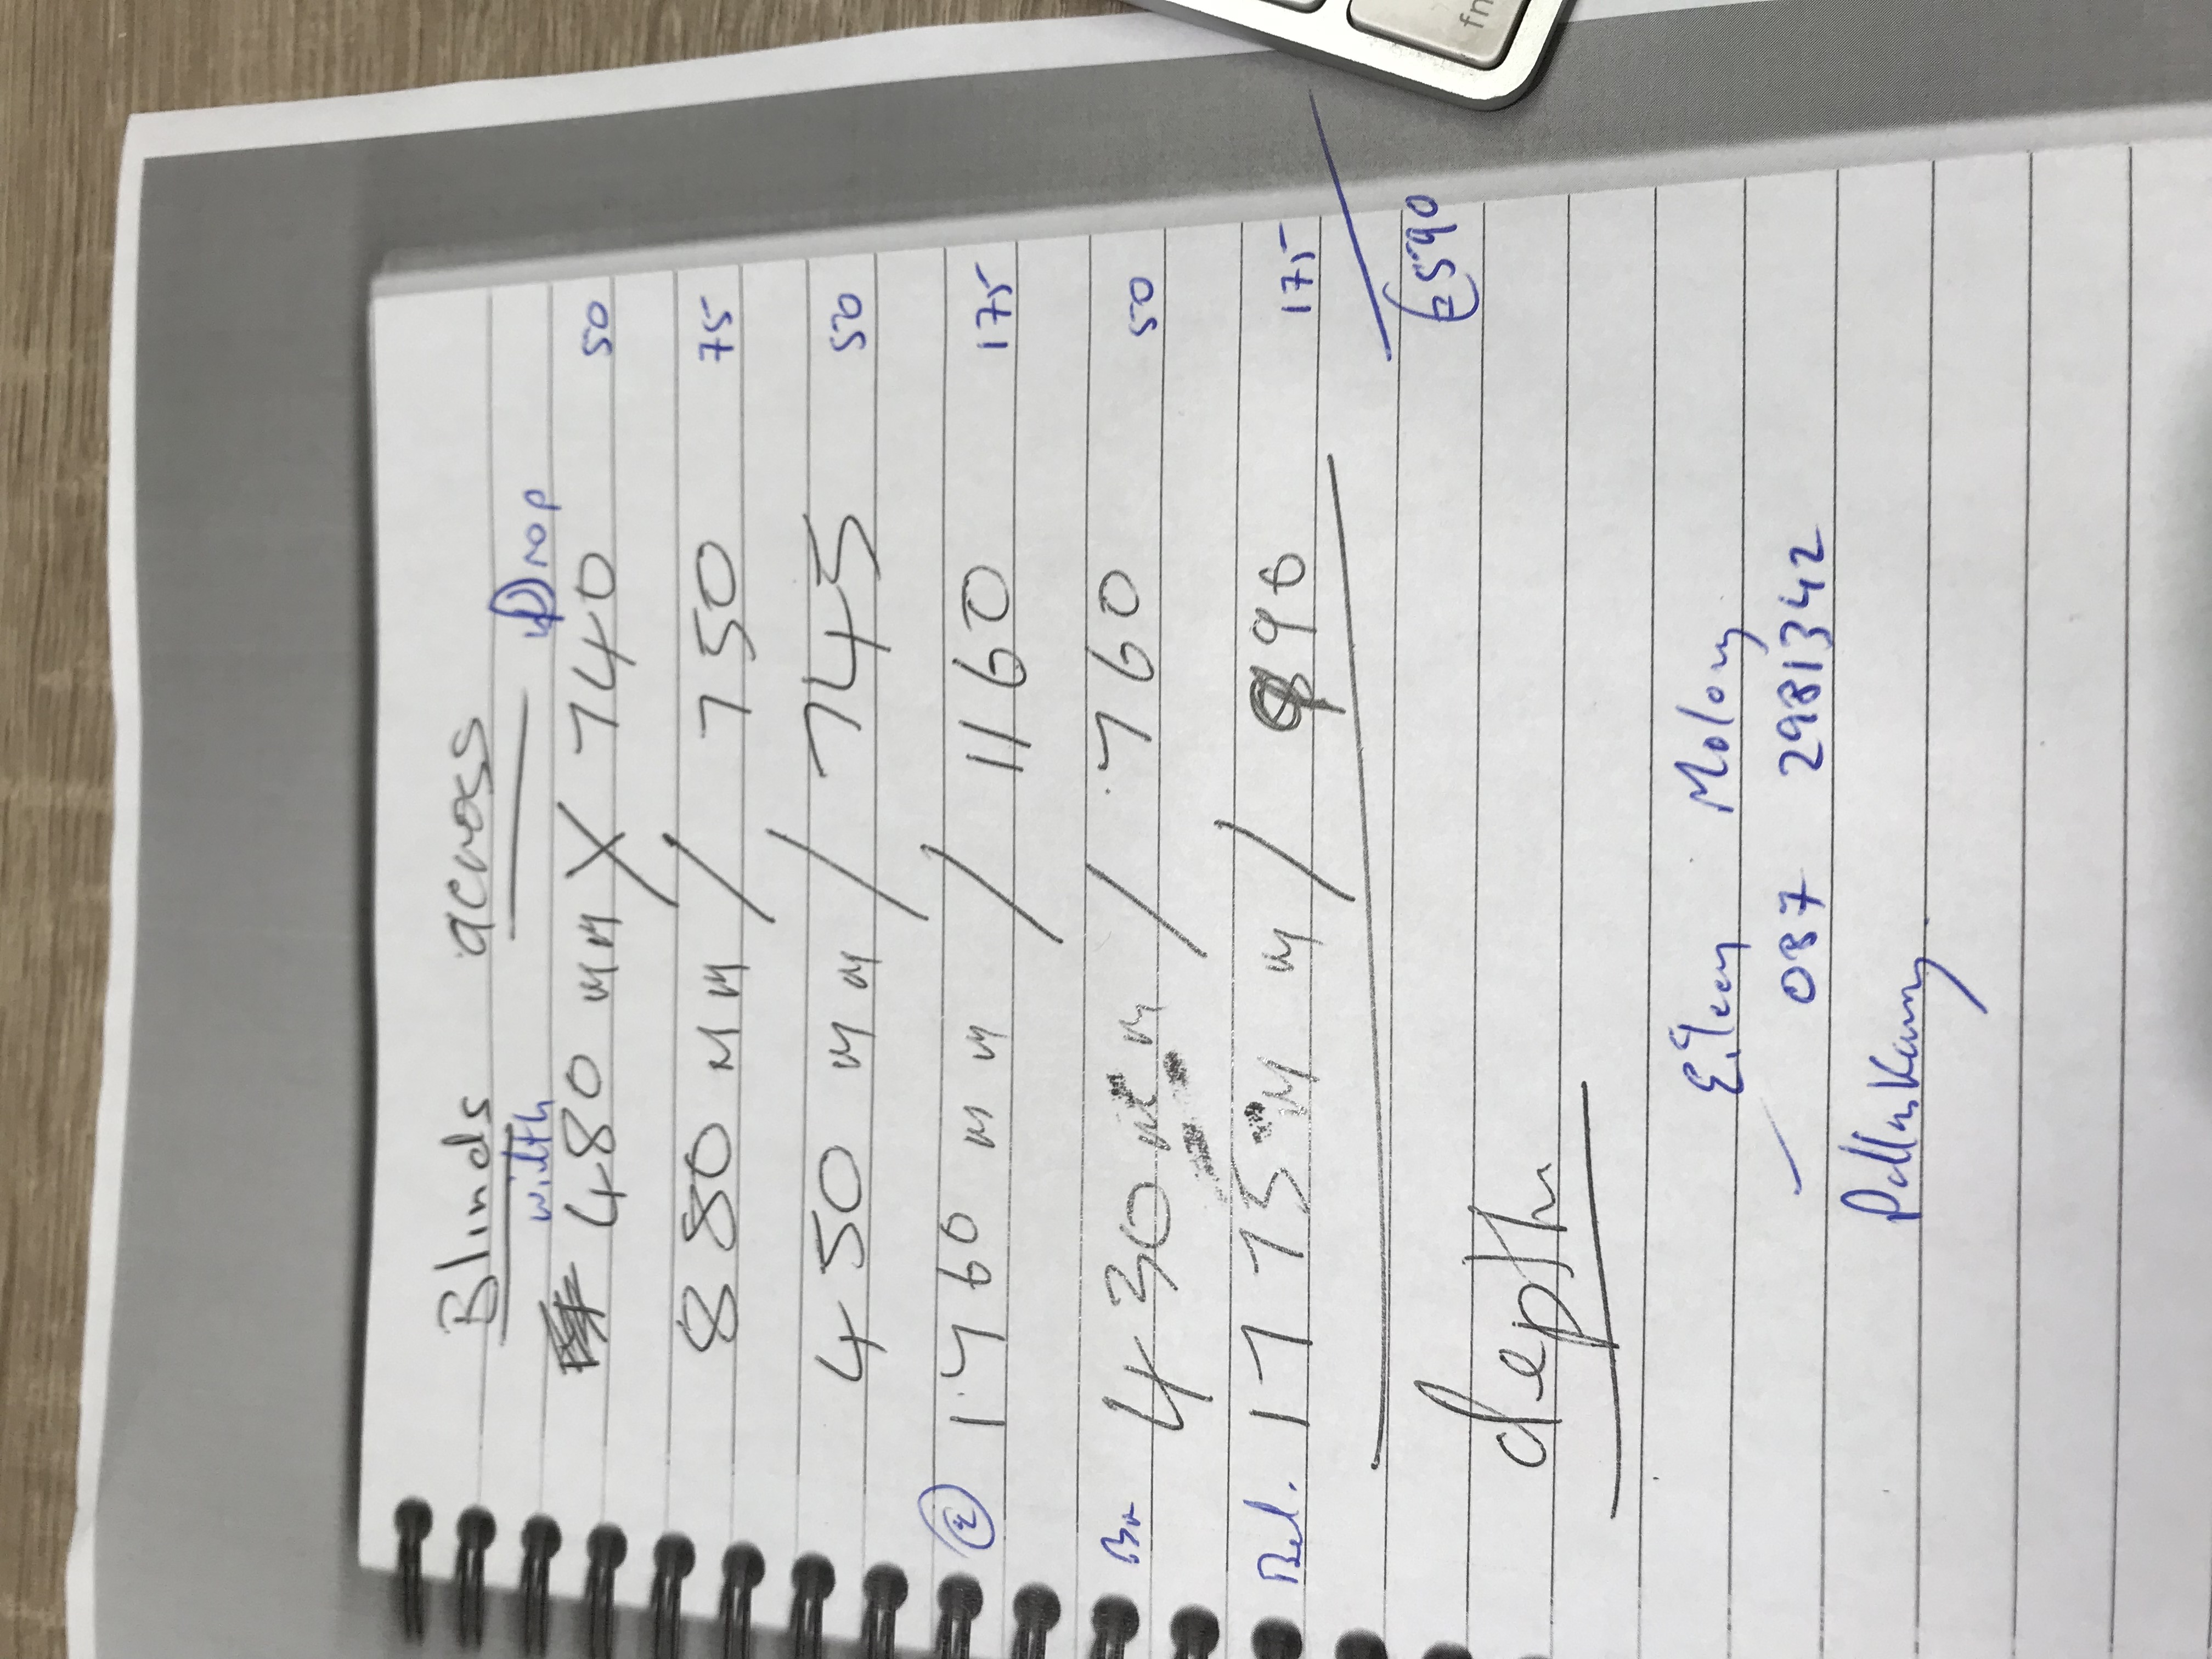 Blinds across
width Drop
480 MM X 740 50
880 MM / 750 75
450 MM / 745 50
② 1760 MM / 1160 175
430 MM / 760 50
1775 MM / 990 175
€590
depth
Molony
087 2981342
Pallaskenry
fn